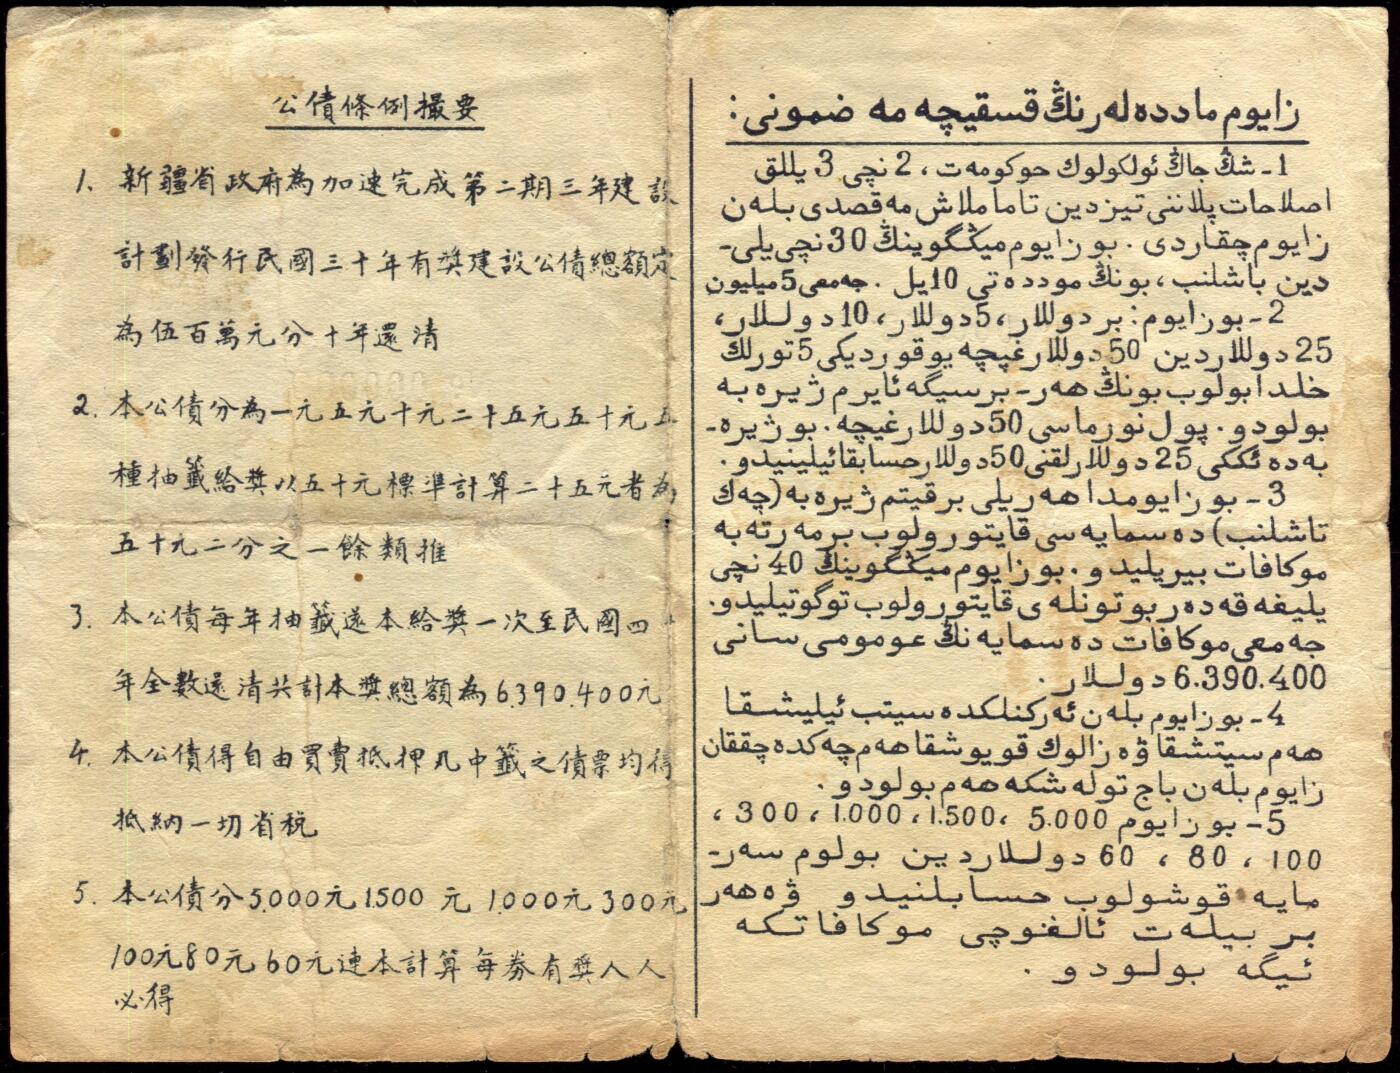 公債條例撮要
1. 新疆省政府為加速完成第二期三年建設
計劃發行民國三十年有獎建設公債總額定
為伍百萬元分十年還清
2. 本公債分為一元五元十元二十五元五十元五
種抽籤給獎以五十元標準計算二十五元者為
五十元二分之一餘類推
3. 本公債每年抽籤還本給獎一次至民國四十
年全數還清共計本獎總額為6.390.400元
4. 本公債得自由買賣抵押凡中籤之債票均得
抵納一切省稅
5. 本公債分5.000元1.500元1.000元300元
100元80元60元連本計算每券有獎人人
必得
زايوم ماددە لەرنىڭ قسقيچە مە ضمونى :
1- شڭ جاڭ ئولكولوك حوكومەت، 2 نچى 3 يللق
اصلاحات پلاننى تيزدين تاماملاش مەقصدى بلەن
زايوم چقاردى. بو زايوم ميڭگوينڭ 30 نچى يلى-
دين باشلنب، بونڭ موددەتى 10 يل. جەمعى 5 ميليون
2- بو زايوم: بر دوللار، 5 دوللار، 10 دوللار،
25 دوللاردين 50 دوللارغيچە يوقورديكى 5 تورلك
خلدا بولوب بونڭ هەر- برسيگە ئايرم ژيرە بە
بولودو. پول نورماسى 50 دوللارغيچە. بو ژيرە-
بە دە ئككى 25 دوللارلقنى 50 دوللار حسابقا ئيلينيدو.
3- بو زايومدا هەر يلى برقيتم ژيرە بە (چەك
تاشلنب) دە سمايە سى قايتورولوب برمەرتە بە
موكافات بيريليدو. بو زايوم ميڭگوينڭ 40 نچى
يليغە قەدەر بوتونلەى قايتورولوب توگوتيليدو.
جەمعى موكافات دە سمايە نڭ عومومى سانى
6.390.400 دوللار.
4- بو زايوم بلەن ئەركنلكدە سيتب ئيليشقا
هەم سيتشقا ۋە زالوك قويوشقا هەم چەكدە چققان
زايوم بلەن باج تولە شكە هەم بولودو.
5- بو زايوم 5.000 ،1.500 ،1.000 ،300 ،
100 ، 80 ، 60 دوللاردين بولوم سەر-
مايە قوشولوب حسابلنيدو ۋە هەر
بر بيلەت ئالغوچى موكافاتكە
ئيگە بولودو.